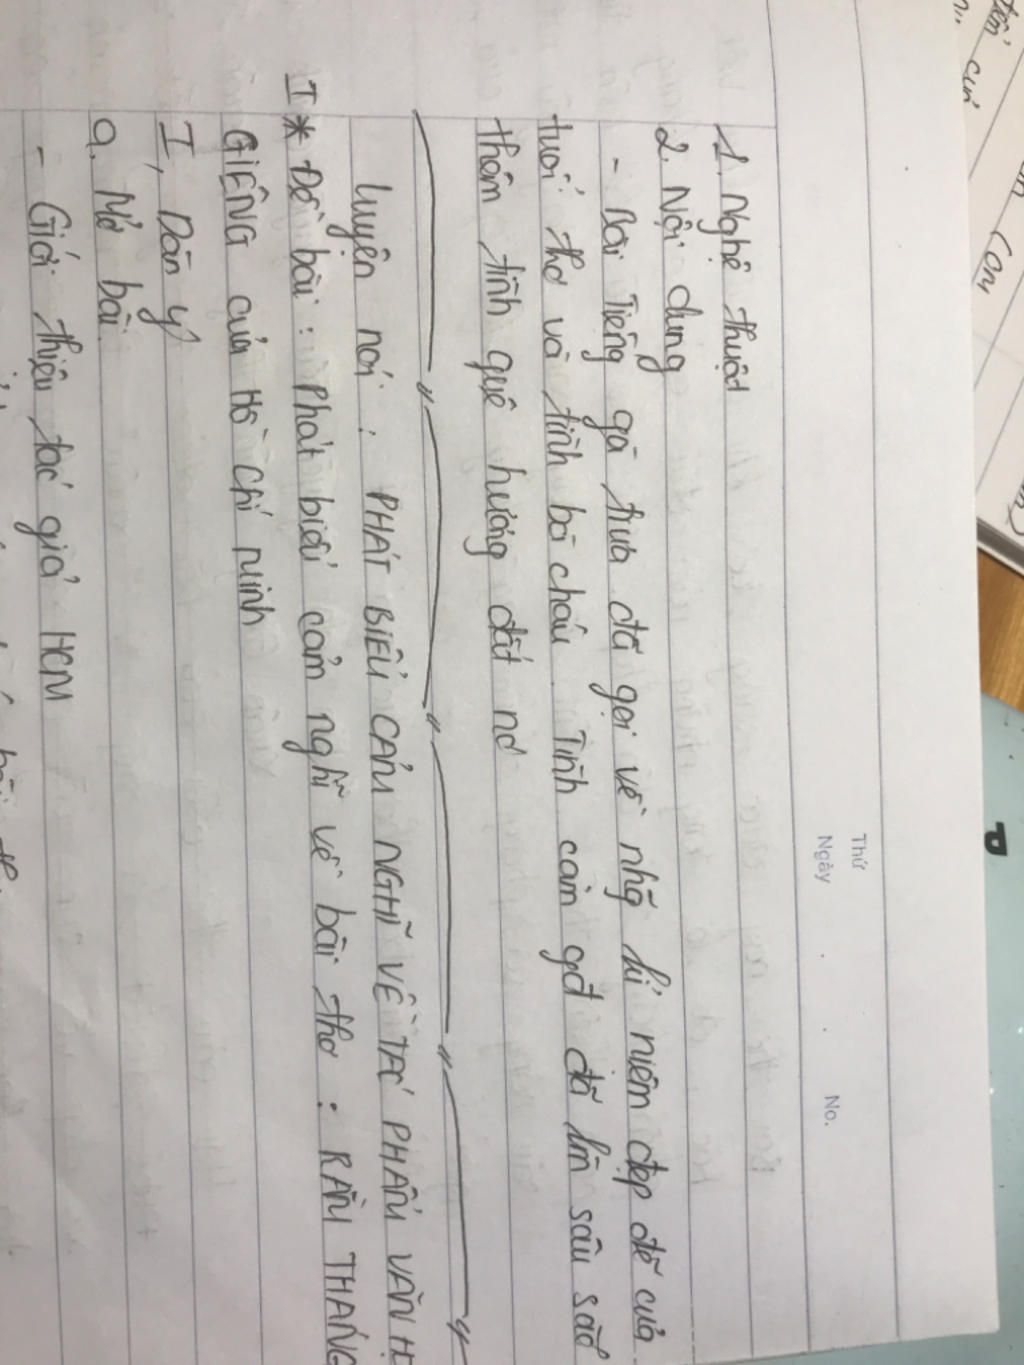 Thứ
Ngày . . No.
1. Nghệ thuật
2. Nội dung
- Bài Tiếng gà trưa đã gọi về nhỡ kỉ niệm đẹp đẽ của
tuổi thơ và tình bà cháu. Tình cảm gđ đã làm sâu sắc
thêm tình quê hương đất nc
Luyện nói : PHÁT BIỂU CẢM NGHĨ VỀ TÁC PHẨM VĂN H
I * Đề bài : Phát biểu cảm nghĩ về bài thơ : RẰM THÁNG
GIÊNG của Hồ Chí Minh
I, Dàn ý
a. Mở bài
- Giới thiệu tác giả HCM
cuи
con